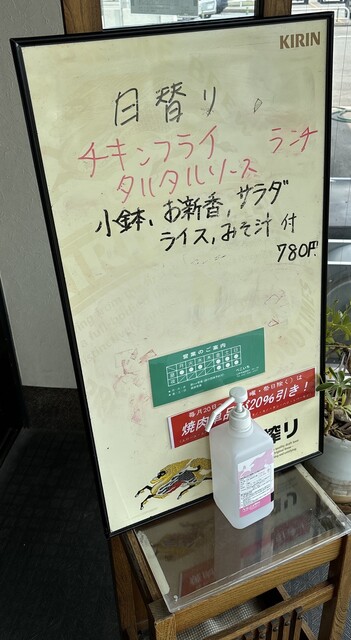 KIRIN
日替り
チキンフライ ランチ
タルタルソース
小鉢、お新香、サラダ
ライス、みそ汁 付
780円
営業のご案内
毎月20日
日除く)は
焼肉単品
20%引き!
搾り